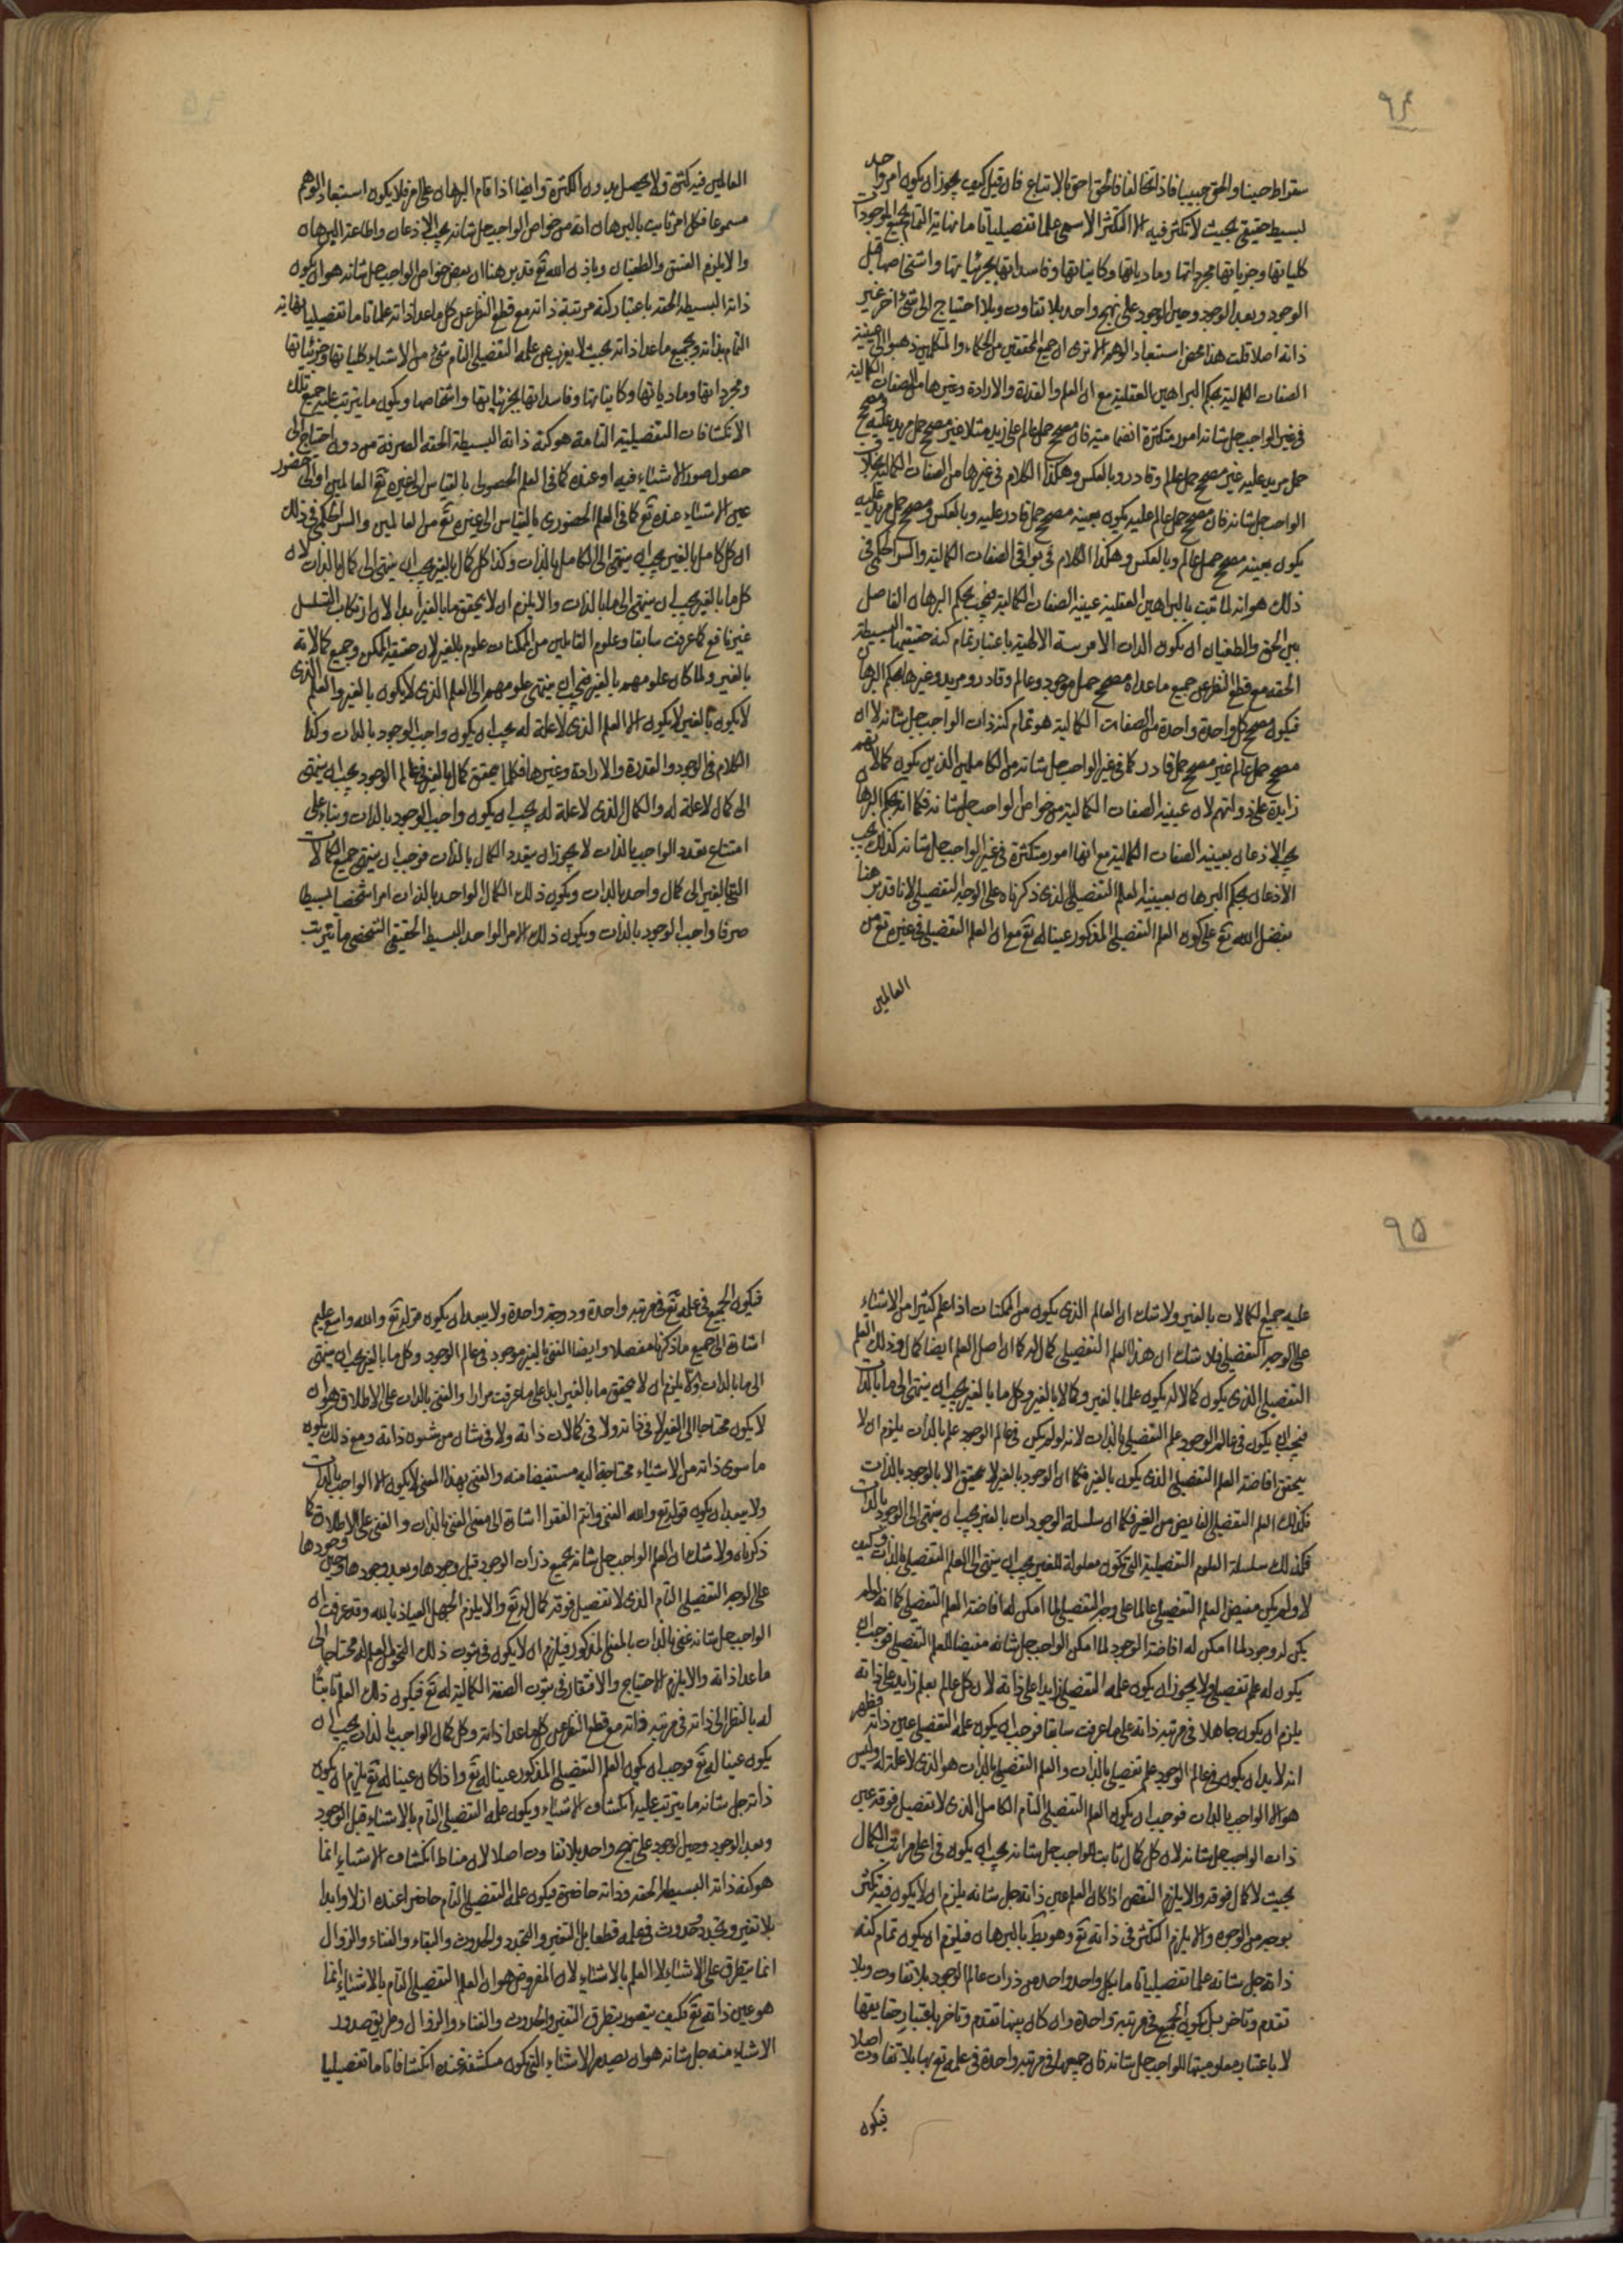 ٩٤
سقراط حبيبنا والحق حبيبنا فاذا تخالفا فالحق احق بالاتباع فان قيل كيف يجوز ان يكون امر واحد
بسيط حقيقي بحيث لا تكثر فيه الا التكثر الاسمي علما تفصيليا تاما نهاية التمام بجميع الموجودات
كلياتها وجزياتها مجرداتها ومادياتها وكايناتها وفاسداتها بجزئياتها واشخاصها قبل
الوجود وبعد الوجود وحين الوجود على نهج واحد بلا تفاوت وبلا احتياج الى شئ اخر غير
ذاته اصلا قلت هذا محض استبعاد الوهم الا ترى ان جميع المحققين من الحكماء والمتكلمين ذهبوا الى عينية
الصفات الكمالية بحكم البراهين العقلية مع ان العلم والقدرة والارادة وغيرها من الصفات الكمالية
في غير الواجب جل شانه امور متكثرة انضمامية فان مصحح حمل عالم على زيد مثلا غير مصحح حمل مريد عليه ومصحح
حمل مريد عليه غير مصحح حمل عالم وقادر وبالعكس وهكذا الكلام في غيرها من الصفات الكمالية بخلاف
الواجب جل شانه فان مصحح حمل عالم عليه يكون بعينه مصحح حمل قادر عليه وبالعكس ومصحح حمل مريد عليه
يكون بعينه مصحح حمل عالم وبالعكس وهكذا الكلام في بواقي الصفات الكمالية والسر الحكمي في
ذلك هو انه لما ثبت بالبراهين العقلية عينية الصفات الكمالية فيجب بحكم البرهان الفاصل
بين الحق والطغيان ان يكون الذات الاقدسة الالهية باعتبار تمام كنه حقيقتها البسيطة
الحقه مع قطع النظر عن جميع ماعداه مصحح حمل موجود وعالم وقادر ومريد وغيرها بحكم البرهان
فيكون مصحح كل واحدة واحدة من الصفات الكمالية هو تمام كنه ذات الواجب جل شانه لا ان
مصحح حمل عالم غير مصحح حمل قادر كما في غير الواجب جل شانه من الكاملين الذين يكون كمالاتهم
زايدة على ذواتهم لان عينية الصفات الكمالية من خواص الواجب جل شانه فكما انه بحكم البرهان
يجب الاذعان بعينية الصفات الكمالية مع انها امور متكثرة في غير الواجب جل شانه كذلك يجب
الاذعان بحكم البرهان بعينية العلم التفصيلي الذي ذكرناه على الوجه التفصيلي لانا قد برهنا
بفضل الله تع على كون العلم التفصيلي المذكور عينا له تع مع ان العلم التفصيلي في غيره تع من
العالمين
العالمين فيه كثرة ولا يحصل بدون الكثرة وايضا اذا قام البرهان على امر فلا يكون استبعاد الوهم
مسموعا فكل امر ثابت بالبرهان انه من خواص الواجب جل شانه يجب الاذعان واطاعة البرهان
والا يلزم الفسق والطغيان وباذن الله تع قد برهنا ان بعض خواص الواجب جل شانه هو ان يكون
ذاته البسيطة الحقه باعتبار كنه مرتبة ذاته مع قطع النظر عن كل ماعدا ذاته علما تاما تفصيليا نهاية
التمام بذاته وبجميع ماعدا ذاته بحيث لا يعزب عن علمه التفصيلي التام شئ من الاشياء كلياتها وجزئياتها
ومجرداتها ومادياتها وكايناتها وفاسداتها بجزئياتها واشخاصها ويكون ما يترتب عليه جميع تلك
الانكشافات التفصيلية التامة هو كنه ذاته البسيطة الحقه الصرفة من دون احتياج الى
حصول صور الاشياء فيه او عنده كما في العلم الحصولي بالقياس الى غيره تع من العالمين او الى حضور
عين الاشياء عنده تع كما في العلم الحضوري بالقياس الى غيره تع من العالمين والسر الحكمي في ذلك
ان كل كامل بالغير يجب ان ينتهي الى الكامل بالذات وكذا كل كمال بالغير يجب ان ينتهي الى كمال بالذات لان
كل ما بالغير يجب ان ينتهي الى ما بالذات والا يلزم ان لا يتحقق ما بالغير ابدا لان ارتكاب التسلسل
غير نافع كما عرفت سابقا وعلوم القابلين من الممكنات علوم بالغير لان حقيقة الممكن وجميع كمالاته
بالغير ولما كان علومهم بالغير فيجب ان ينتهي علومهم الى العلم الذي لا يكون بالغير والعلم الذي
لا يكون بالغير لا يكون الا العلم الذي لا علة له يجب ان يكون واجب الوجود بالذات وكذا
الكلام في الوجود والقدرة والارادة وغيرها فكلما يتحقق كمال بالغير في عالم الوجود يجب ان ينتهي
الى كمال لا علة له والكمال الذي لا علة له يجب ان يكون واجب الوجود بالذات وبناء على
امتناع تعدد الواجب بالذات لا يجوز ان يتعدد الكمال بالذات فوجب ان ينتهي جميع الكمالات
التي بالغير الى كمال واحد بالذات ويكون ذلك الكمال الواحد بالذات امرا شخصيا بسيطا
صرفا واجب الوجود بالذات ويكون ذلك الامر الواحد البسيط الحقيقي الشخصي ما يترتب
٩٥
عليه جميع الكمالات بالغير ولا شك ان العالم الذي يكون من الممكنات اذا علم كثيرا من الاشياء
على الوجه التفصيلي فلا شك ان هذا العلم التفصيلي كمال له كما ان اصل العلم ايضا كمال وذلك العلم
التفصيلي الذي يكون كمالا له يكون علما بالغير وكمالا بالغير وكل ما بالغير يجب ان ينتهي الى ما بالذات
فيجب ان يكون في عالم الوجود علم التفصيلي بالذات لانه لو لم يكن في عالم الوجود علم بالذات يلزم ان لا
يتحقق افاضة العلم التفصيلي الذي يكون بالغير فكما ان الوجود بالغير لا يتحقق الا بالوجود بالذات
فكذلك العلم التفصيلي الفايض من الغير فكما ان سلسلة الوجودات بالغير يجب ان ينتهي الى الوجود بالذات
فكذلك سلسلة العلوم التفصيلية التي تكون معلولة للغير يجب ان ينتهي الى العلم التفصيلي بالذات وكيف
لا ولم يكن مفيض العلم التفصيلي عالما على وجه التفصيلي لما امكن له افاضة العلم التفصيلي كما انه لو لم
يكن له وجود لما امكن له افاضة الوجود لما امكن الواجب جل شانه مفيضا للعلم التفصيلي فوجب ان
يكون له علم تفصيلي ولا يجوز ان يكون علمه التفصيلي زايدا على ذاته لان كل عالم بعلم زايد على ذاته
يلزم ان يكون جاهلا في مرتبة ذاته على ما عرفت سابقا فوجب ان يكون علمه التفصيلي عين ذاته فظهر
انه لا بد ان يكون في عالم الوجود علم تفصيلي بالذات والعلم التفصيلي بالذات هو الذي لا علة له وليس
هو الا الواجب بالذات فوجب ان يكون العلم التفصيلي التام الكامل الذي لا تفصيل فوقه عين
ذات الواجب جل شانه لان كل كمال ثابت للواجب جل شانه يجب ان يكون في اعلى مراتب الكمال
بحيث لا كمال فوقه والا يلزم النقص اذا كان العلم عين ذاته جل شانه يلزم ان لا يكون فيه تكثر
بوجه من الوجوه والا يلزم التكثر في ذاته تع وهو بط بالبرهان فيلزم ان يكون تمام كنه
ذاته جل شانه علما تفصيليا تاما بكل واحد واحد من ذرات عالم الوجود بلا تفاوت وبلا
تقدم وتاخر بل يكون الجميع في مرتبة واحدة وان كان بينها تقدم وتاخر باعتبار حقايقها
لا باعتبار معلوميتها للواجب جل شانه فان جميعها في مرتبة واحدة في علمه تع بها بلا تفاوت اصلا
فيكون
فيكون الجميع في علمه تع في مرتبة واحدة ودرجة واحدة ولا يبعد ان يكون قوله تع والله واسع عليم
اشارة الى جميع ما ذكرنا مفصلا وايضا الغني بالغير موجود في عالم الوجود وكل ما بالغير يجب ان ينتهي
الى ما بالذات والا يلزم ان لا يتحقق ما بالغير ابدا على ما عرفت مرارا والغني بالذات على الاطلاق هو ان
لا يكون محتاجا الى الغير لا في ذاته ولا في كمالات ذاته ولا في شان من شئون ذاته ومع ذلك يكون
ما سوى ذاته من الاشياء محتاجة اليه مستفيضا منه والغني بهذا المعنى لا يكون الا الواجب بالذات
ولا يبعد ان يكون قوله تع والله الغني وانتم الفقرا اشارة الى معنى الغني بالذات والغني على الاطلاق كما
ذكرناه ولا شك ان العلم الواجب جل شانه بجميع ذرات الوجود قبل وجودها وبعد وجودها وحين وجودها
على الوجه التفصيلي التام الذي لا تفصيل فوقه كمال له تع والا يلزم الجهل العياذ بالله وقد عرفت ان
الواجب جل شانه غني بالذات بالمعنى المذكور فيلزم ان لا يكون في ثبوت ذلك النحو العلم له محتاجا الى
ماعدا ذاته والا يلزم الاحتياج والافتقار في ثبوت الصفة الكمالية له تع فيكون ذلك العلم ثابتا
له بالنظر الى ذاته في مرتبة ذاته مع قطع النظر عن كل ماعدا ذاته وكل كمال الواجب بالذات يجب ان
يكون عينا له تع فوجب ان يكون العلم التفصيلي المذكور عينا له تع واذا كان عينا له تع يلزم ان يكون
ذاته جل شانه ما يترتب عليه انكشاف الاشياء ويكون علمه التفصيلي التام بالاشياء قبل الوجود
وبعد الوجود وحين الوجود على نهج واحد بلا تفاوت اصلا لان مناط انكشاف الاشياء انما
هو كنه ذاته البسيطة الحقه وذاته حاضرة فيكون علمه التفصيلي التام حاضرا عنده ازلا وابدا
بلا تغير وتجدد وحدوث في علمه قطعا بل التغير والتجدد والحدوث والبقاء والفناء والزوال
انما يتطرق على الاشياء لا العلم بالاشياء لان المفروض هو ان العلم التفصيلي التام بالاشياء انما
هو عين ذاته تع فكيف يتصور بتطرق التغير والحدوث والفناء والزوال وطريق صدور
الاشياء منه جل شانه هو ان يصدر الاشياء التي تكون منكشفة عنده انكشافا تاما تفصيليا